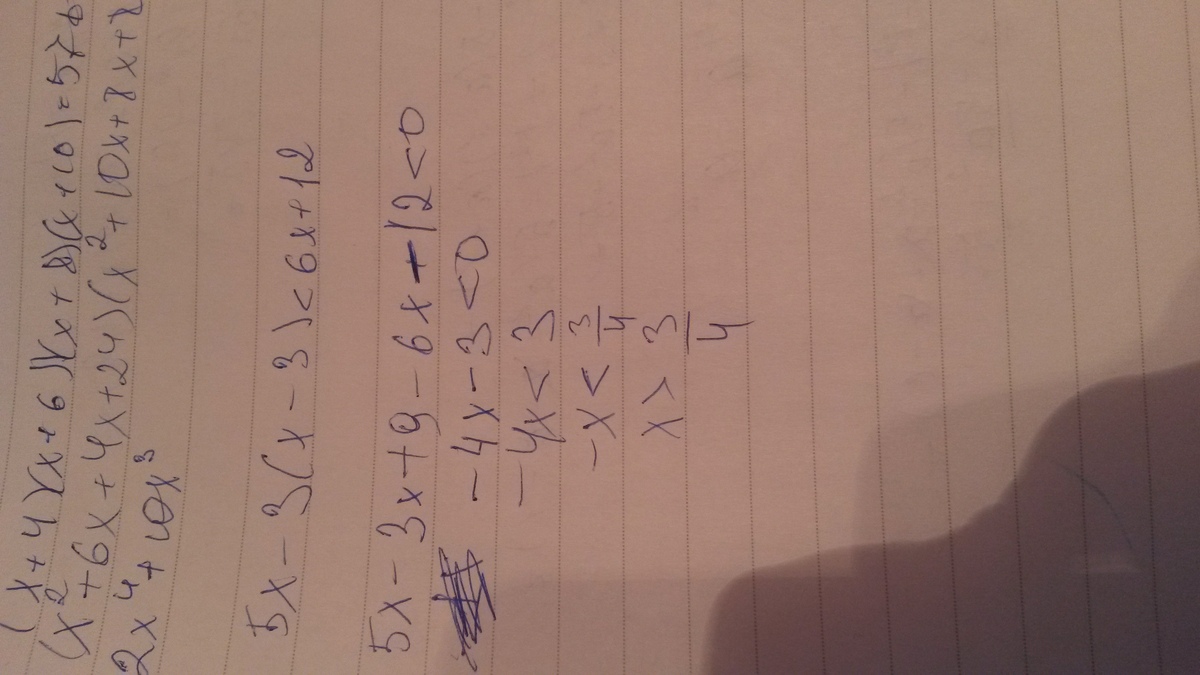 (x+4)(x+6)(x+8)(x+10)=576
(x²+6x+4x+24)(x²+10x+8x+
2x⁴+10x³
5x-3(x-3)<6x+12
5x-3x+9-6x-12<0
-4x-3<0
-4x<3
-x<3/4
x>3/4